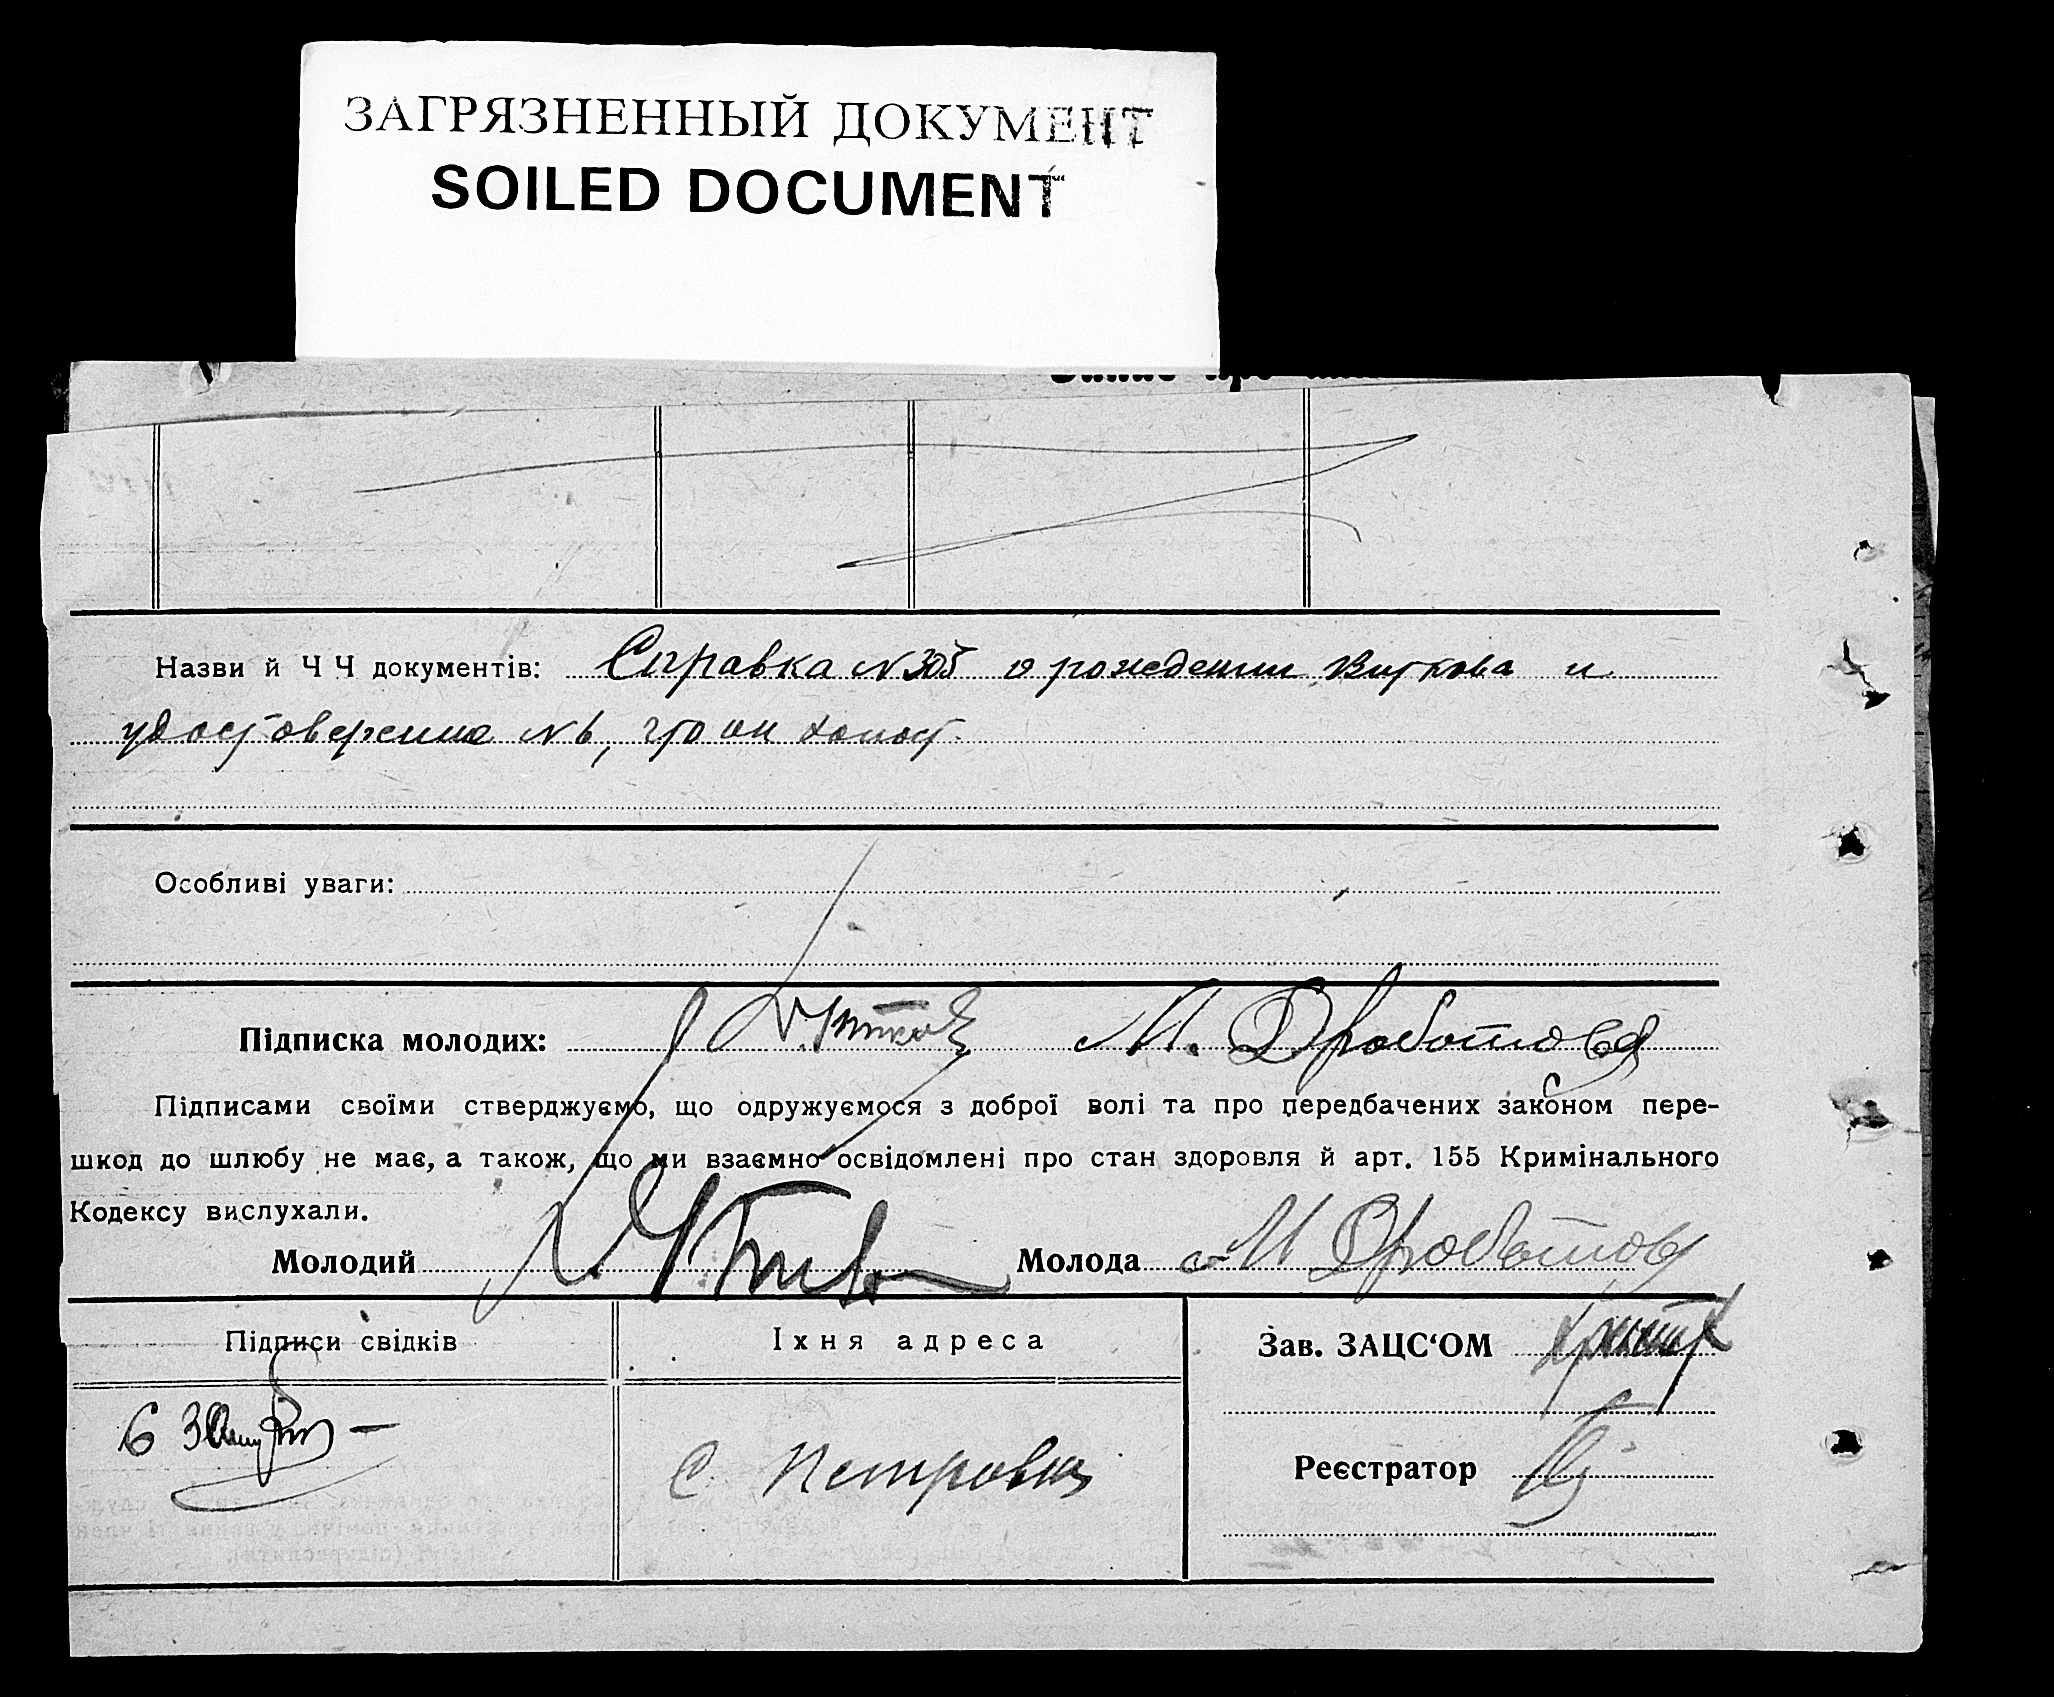 ЗАГРЯЗНЕННЫЙ ДОКУМЕНТ
SOILED DOCUMENT
Назви й Ч Ч документів: Справка N 305 о рождении Вуткова и
удостоверение N 6, что он холост.
Особливі уваги:
Підписка молодих: М. Дроботова
Підписами своїми стверджуємо, що одружуємося з доброї волі та про передбачених законом пере-
шкод до шлюбу не має, а також, що ми взаємно освідомлені про стан здоровля й арт. 155 Кримінального
Кодексу вислухали.
Молодий Молода М Дроботов
Підписи свідків Їхня адреса Зав. ЗАЦС‘ОМ
с. Петровка
Реєстратор